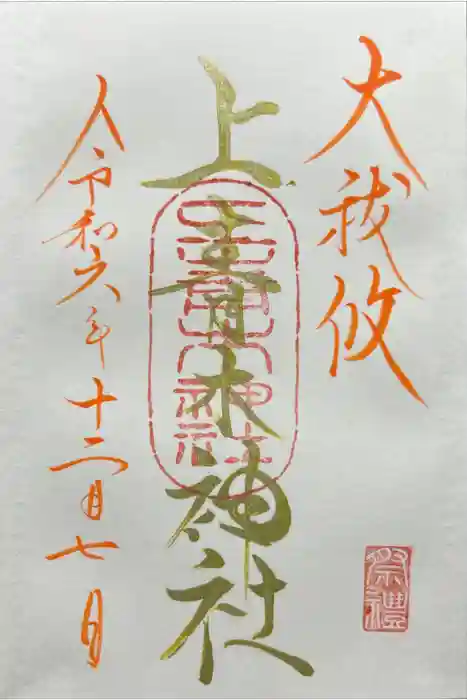 大祓攸
上青木神社
令和六年十二月七日
祭禮